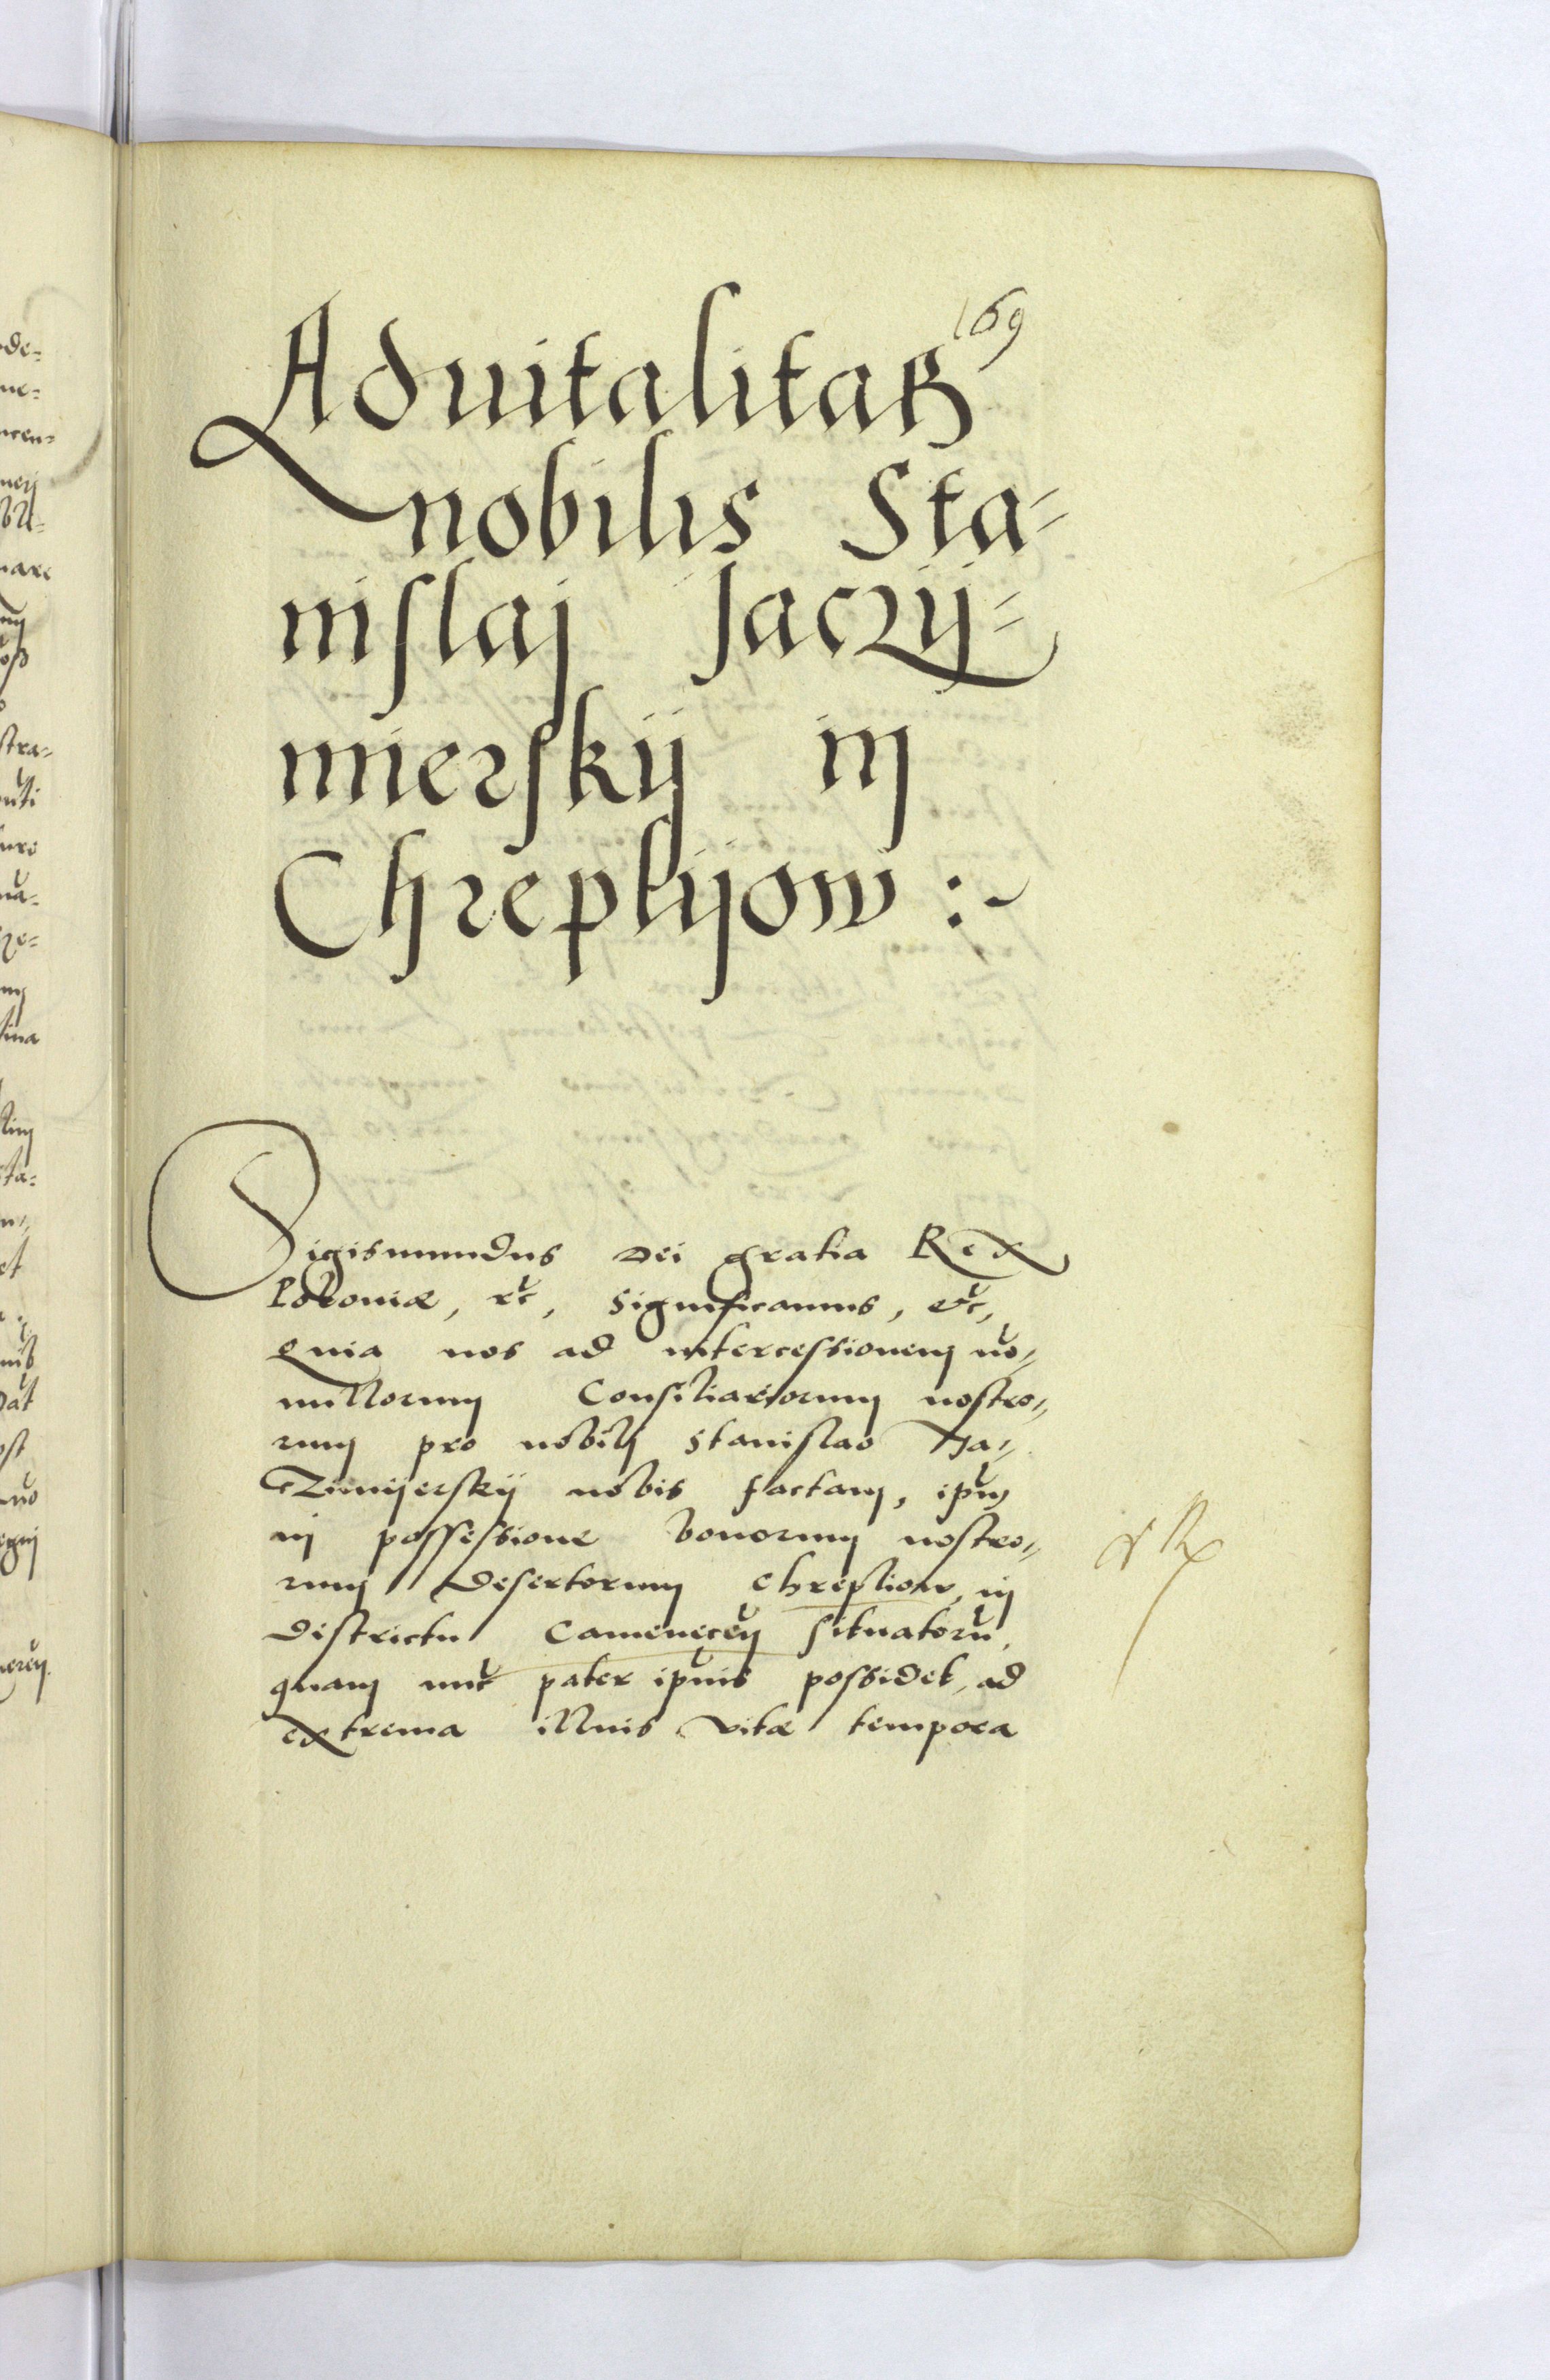 169
Aduitalitas
nobilis Sta-
nislaj Jaczÿ-
mierskÿ in
Chreptÿow :~
Sigismundus Dei gratia Rex
Poloniæ, etc, significamus, etc,
Quia nos ad intercessionem nō-
nullorum Consiliariorum nostro-
rum pro nobilj Stanislao Ja-
czimÿerskÿ nobis factam, ipūm
in possessione bonorum nostro-
rum desertorum Chreptiow, in
districtu Camenecen̄ situatorū,
quam nūc pater ipīus possidet, ad
extrema illius vitæ tempora